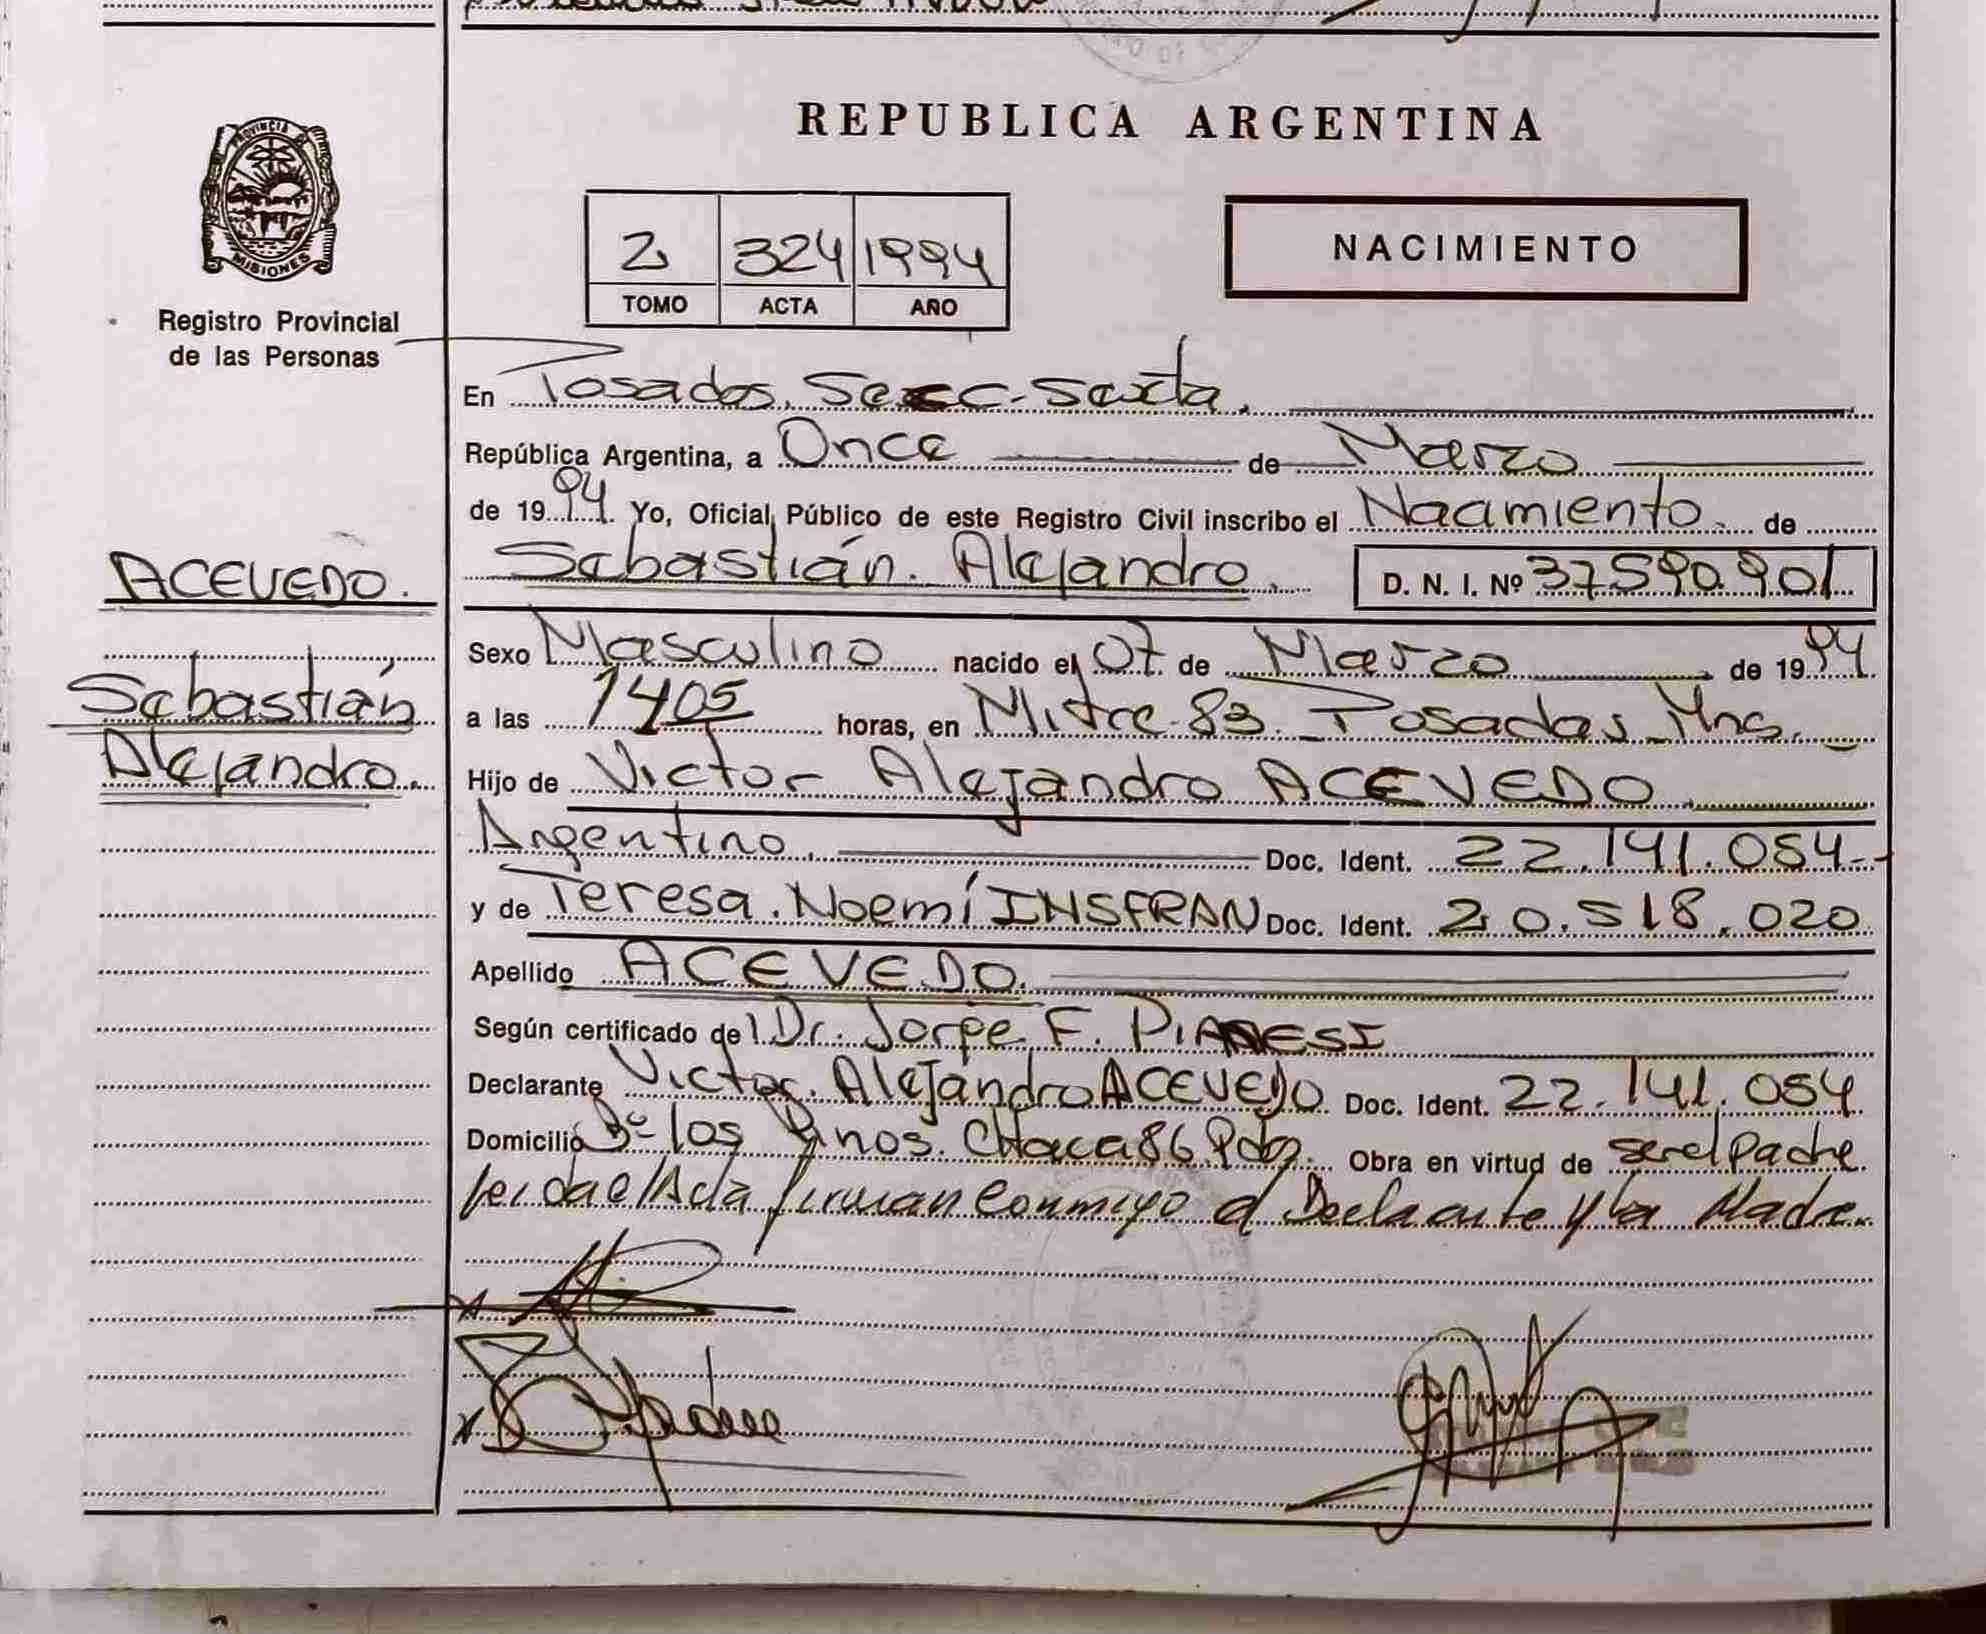 REPUBLICA ARGENTINA
PROVINCIA DE
MISIONES
Registro Provincial
de las Personas
2 324 1994
TOMO ACTA AÑO
NACIMIENTO
En Posadas, Secc. Sexta.
República Argentina, a Once de Marzo
de 1994. Yo, Oficial Público de este Registro Civil inscribo el Nacimiento de
Sebastián Alejandro. D. N. I. Nº 37590.901
ACEVEDO.
Sebastián
Alejandro.
Sexo Masculino nacido el 07 de Marzo de 1994
a las 1405 horas, en Mitre 83. Posadas Mns.
Hijo de Victor Alejandro ACEVEDO
Argentino. Doc. Ident. 22.141.054.-
y de Teresa Noemí INSFRAN Doc. Ident. 20.518.020
Apellido ACEVEDO.
Según certificado del Dr. Jorge F. PIANESI
Declarante Victor Alejandro ACEVEDO Doc. Ident. 22.141.054
Domicilio Bº los Pinos. Chaca 86 Pdas. Obra en virtud de ser el padre
leida el Acta firman conmigo el Declarante y la Madre.